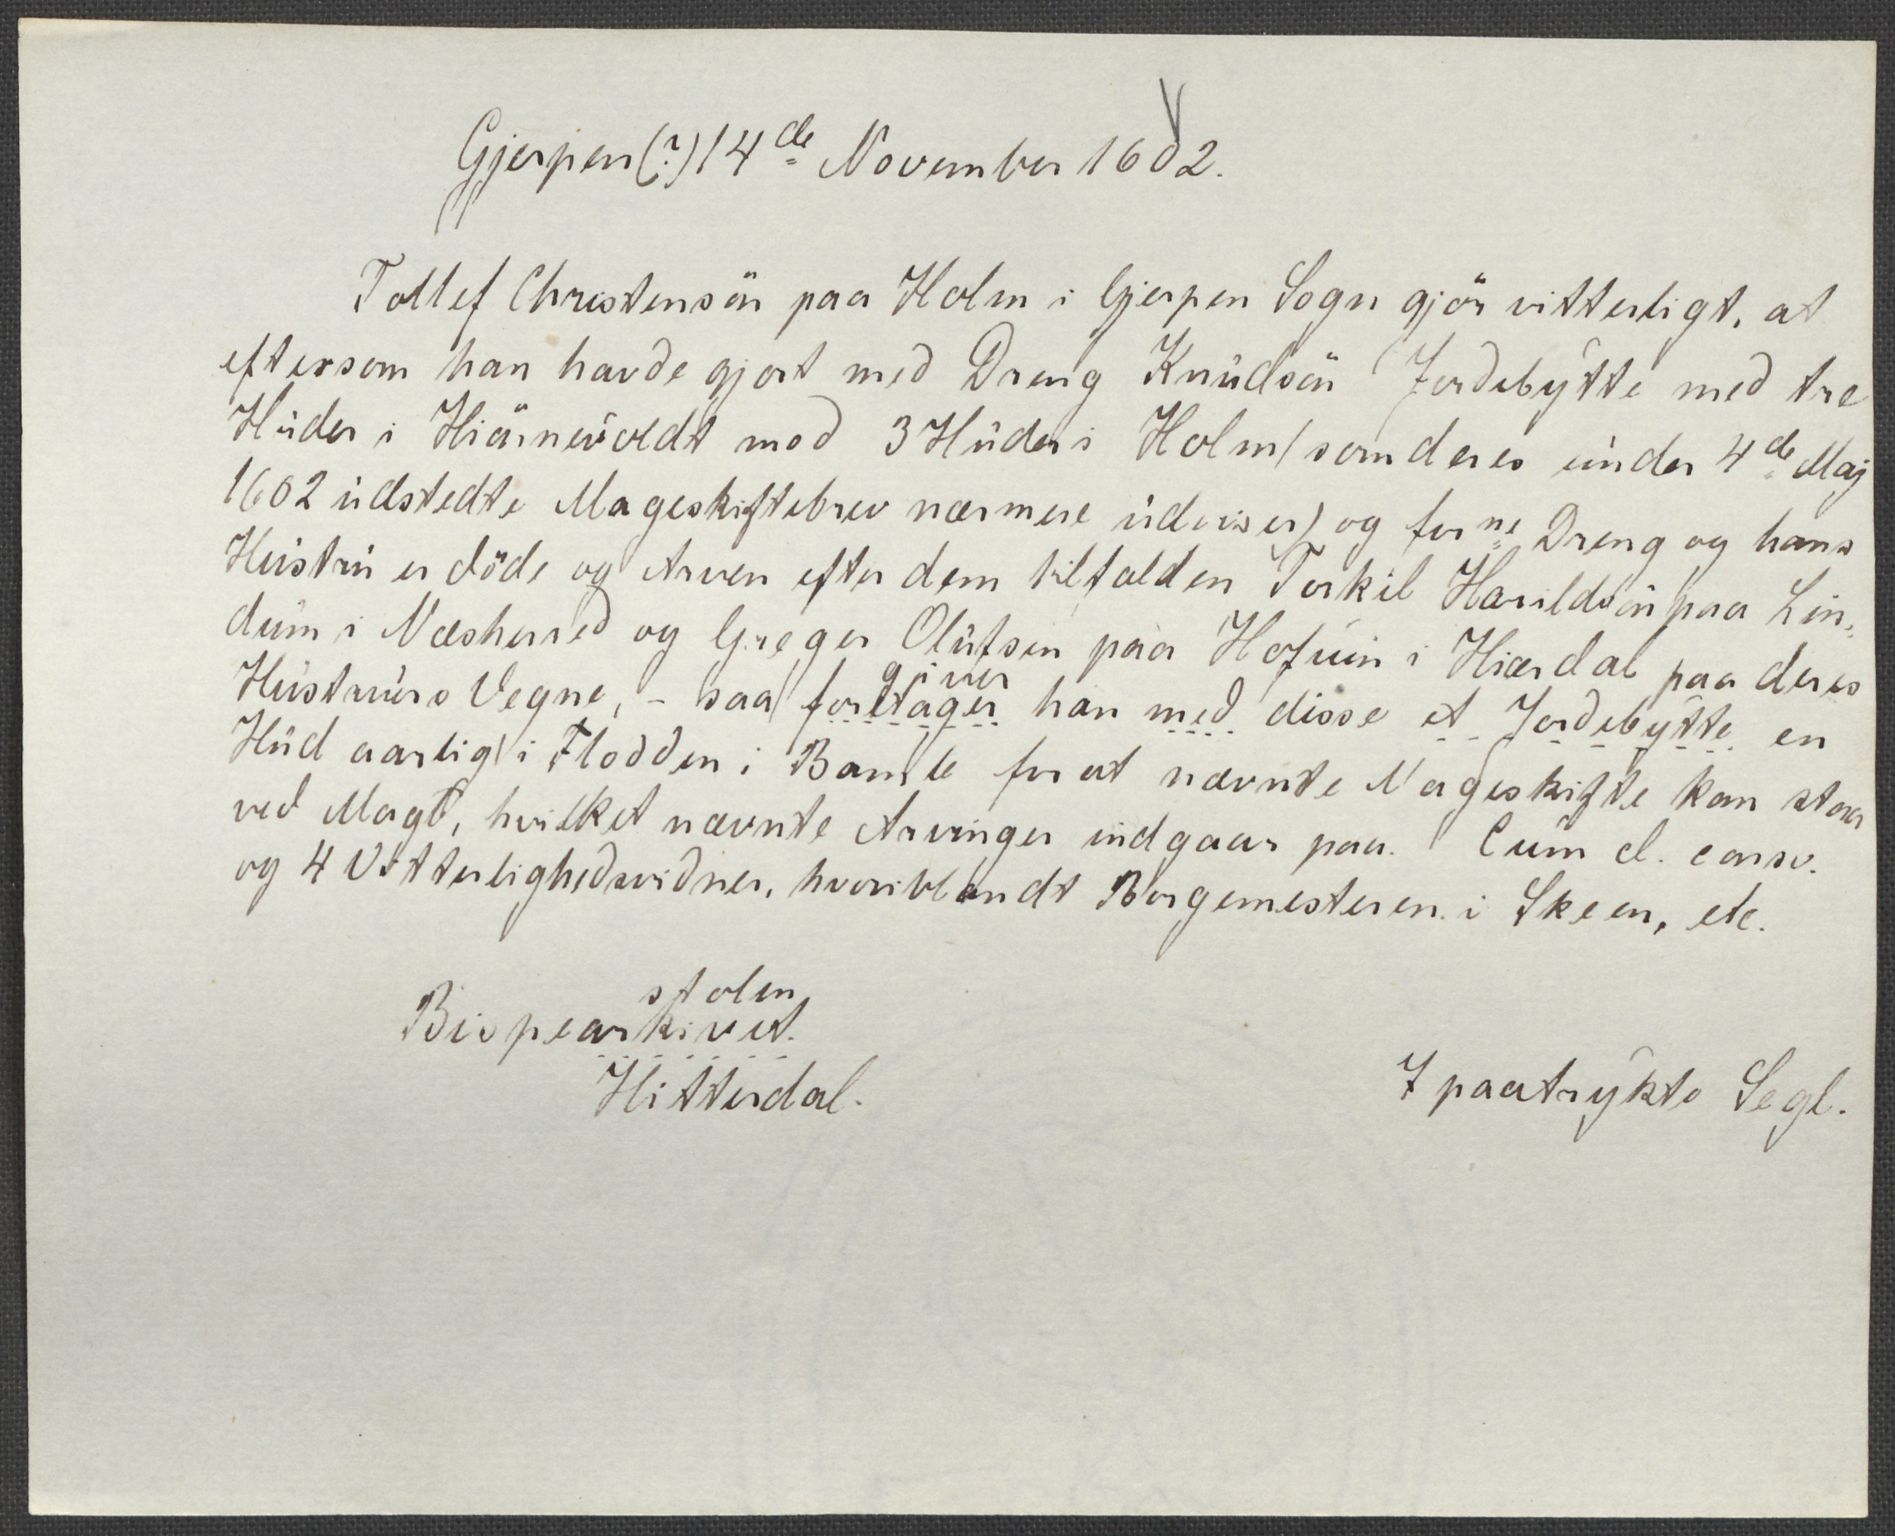 Gjerpen(?) 14de November 1602.
Tollef Christensön paa Holm i Gjerpen Sogn gjör vitterligt, at
eftersom han havde gjort med Dreng Knudsön Jordebytte med tre
Huder i Hiärnevoldt mod 3 Huder i Holm (som deres under 4de Maj
1602 udstedte Mageskiftebrev nærmere udviser) og forne Dreng og hans
Hustru er döde og Arven efter dem tilfalden Torkil Harildsön paa Lin-
dum i Næsherred og Greger Olufsen paa Hofuin i Hiærdal paa deres
giver
Hustruers Vegne, - saa foretager han med disse et Jordebytte en
Hud aarlig i Flodden i Bamle for at nævnte Mageskifte kan staa
ved Magt, hvilket nævnte Arvinger indgaar paa. Cum cl. consv.
og 4 Vitterlighedsvidner, hvoriblandt Borgemesteren i Skeen, etc.
stolen
Bispearkivet.
Hitterdal.
7 paatrykte Segl.